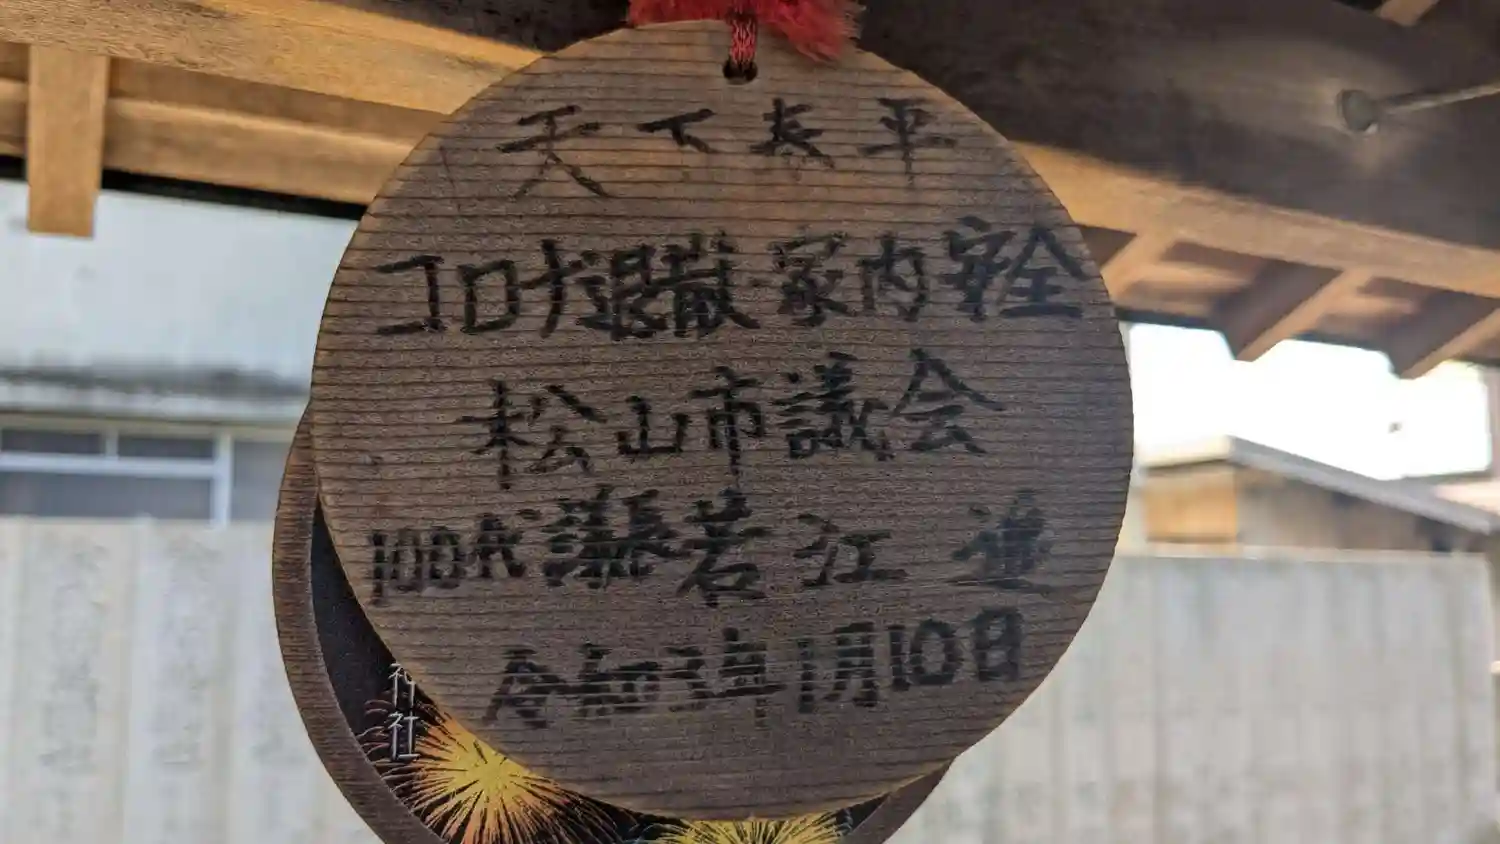 天下泰平
コロナ退散・家内安全
松山市議会
100代議長 若江 進
令和3年1月10日
神社